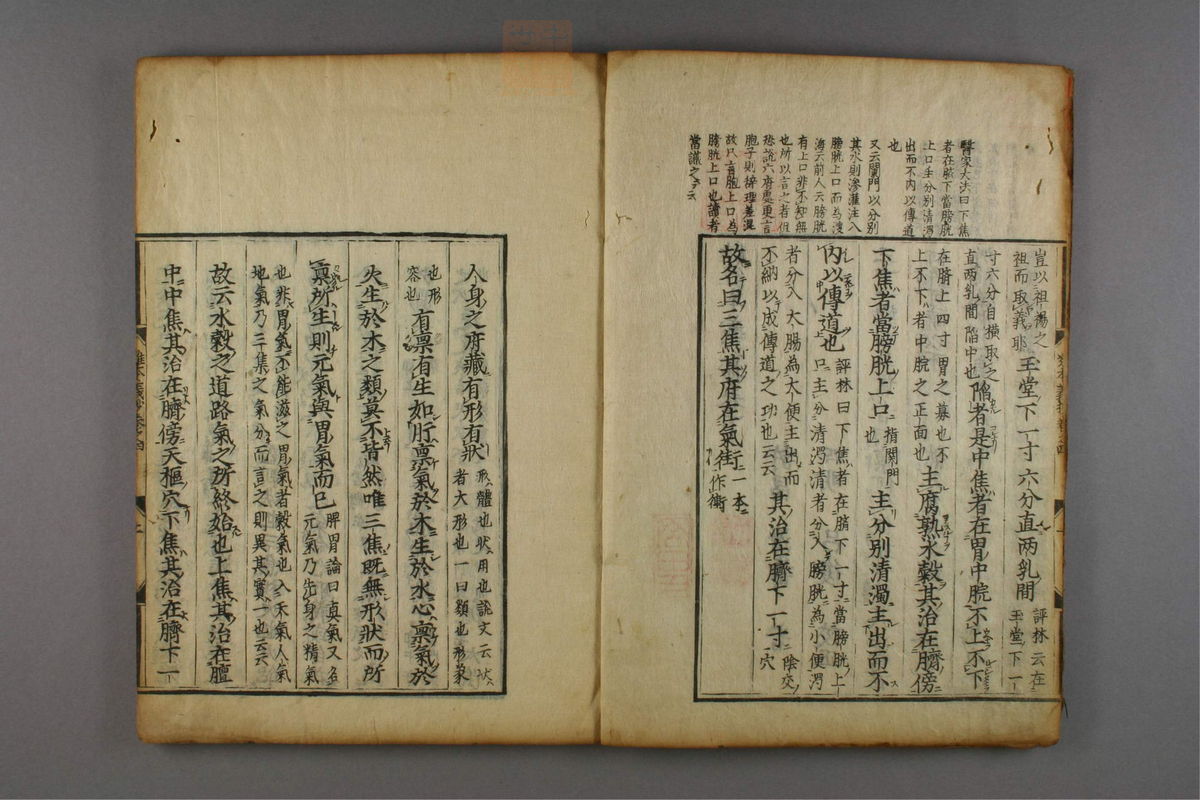 醫家大法曰下焦
者在臍下當膀胱
上口主分別清濁
出而不內以傳道
也
又云闌門以分別
其水則滲灌注入
膀胱上口而為溲
海云前人云膀胱
有上口非不知無
也所以言之者但
恐說六府處更言
胞子則辭理差混
故只言胞上口為
膀胱上口也讀者
當議之云云
豈以祖裼之
祖而取義耶玉堂下一寸六分直两乳間評林云在
玉堂下一
寸六分自橫取之
直两乳間陷中也陷者是中焦者在胃中脘不上不下
在臍上四寸胃之募也不
上不下者中脘之正面也主腐熟水穀其治在臍傍
下焦者當膀胱上口指闌門
也主分別清濁主出而不
內以傳道也評林曰下焦者在臍下一寸當膀胱上
口主分清濁清者分入膀胱為小便濁
者分入大腸為大便主出而
不納以成傳道之功也云云其治在臍下一寸陰交
穴
故名曰三焦其府在氣街一本
作衝
人身之府藏有形有狀形體也狀用也說文云狀
者犬形也一曰類也形象
也形
容也有稟有生如肝稟氣於木生於水心稟氣於
火生於木之類莫不皆然唯三焦既無形狀而所
稟所生則元氣與胃氣而已脾胃論曰真氣又名
元氣乃先身之精氣
也非胃氣不能滋之胃氣者穀氣也入禾氣人氣
地氣乃三集之氣分而言之則異其實一也云云
故云水穀之道路氣之所終始也上焦其治在膻
中中焦其治在臍傍天樞穴下焦其治在臍下一